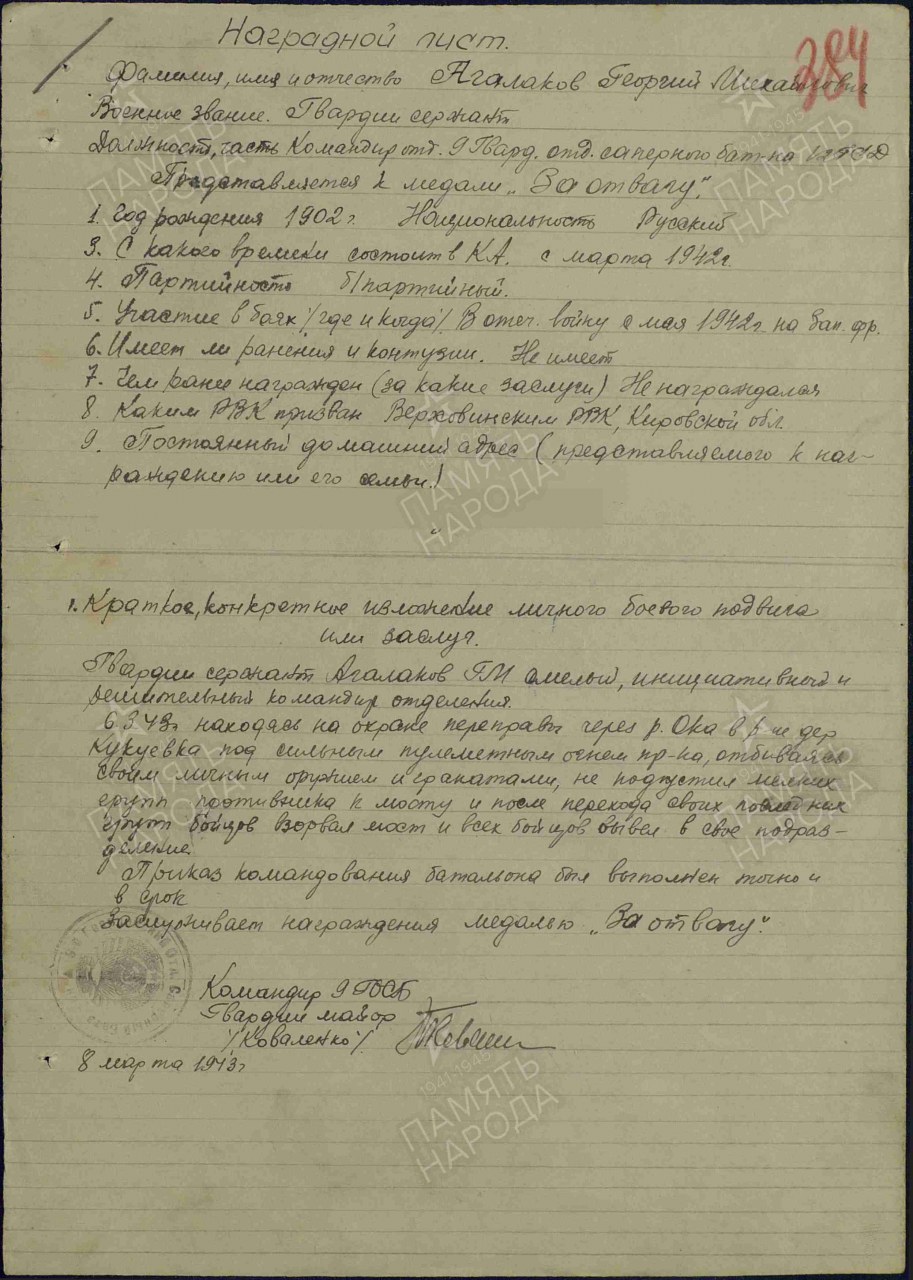 384
Наградной лист.
Фамилия, имя и отчество Агалаков Георгий Михайлович
Военное звание. Гвардии сержант
Должность, часть Командир отд. 9 Гвард. отд. саперного бат-на
Представляется к медали „За отвагу".
1. Год рождения 1902 г. Национальность Русский
3. С какого времени состоит в К.А. с марта 1942 г.
4. Партийность б/партийный.
5. Участие в боях /где и когда/ В отеч. войну с мая 1942 г. на Зап. фр.
6. Имеет ли ранения и контузии. Не имеет
7. Чем ранее награжден (за какие заслуги) Не награждался
8. Каким РВК призван Верховинским РВК, Кировской обл.
9. Постоянный домашний адрес (представляемого к наг-
раждению или его семьи)
1. Краткое, конкретное изложение личного боевого подвига
или заслуг.
Гвардии сержант Агалаков ГМ смелый, инициативный и
решительный командир отделения.
6.3.43г находясь на охране переправы через р. Ока в р-не дер
Кукуевка под сильным пулеметным огнем пр-ка, отбиваясь
своим личным оружием и гранатами, не подпустил мелких
групп противника к мосту и после перехода своих последних
групп бойцов взорвал мост и всех бойцов вывел в свое подраз-
деление.
Приказ командования батальона был выполнен точно и
в срок
Заслуживает награждения медалью „За отвагу".
Командир 9 ГОСБ
Гвардии майор
/Коваленко/
8 марта 1943г
ПАМЯТЬ
НАРОДА
1941-1945